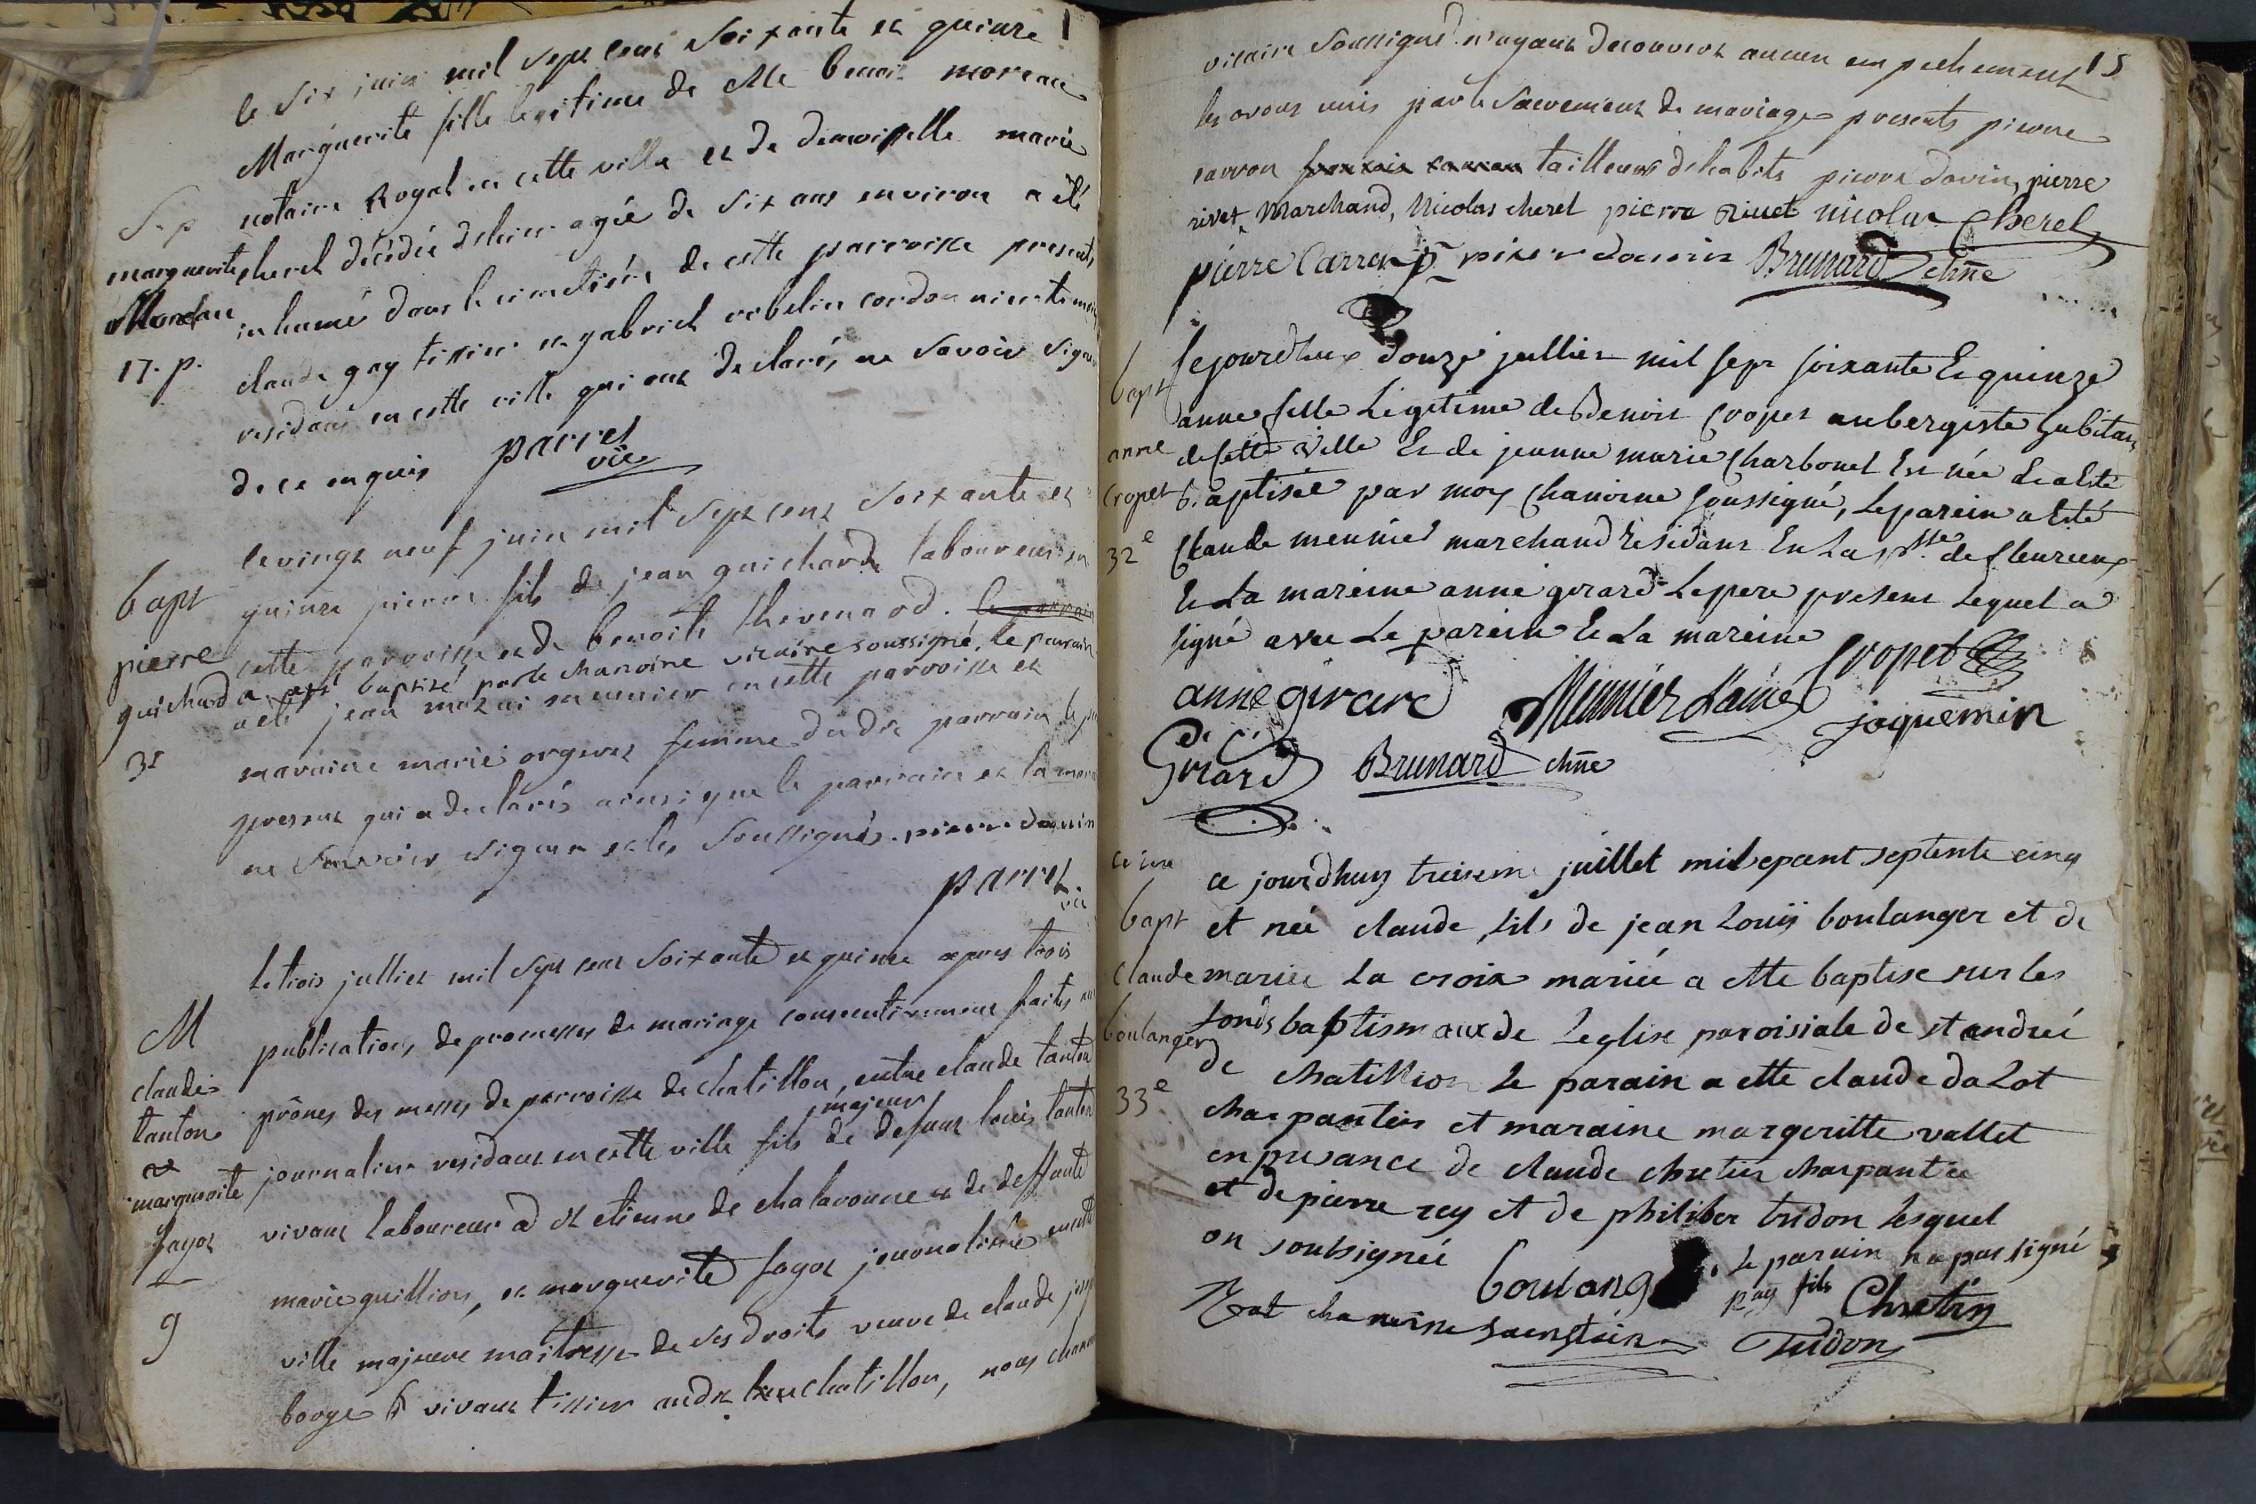 le six juin mil sept cent soixante et quinze
Marguerite fille legitime de Me benoit moreau
notaire Royal en cette ville et de demoiselle marie
cherel décédée d'hier agée de six ans environ a été
inhumé dans le cimetiére de cette parroisse presents
claude gay tissier et gabriel robelin cordonnier temoins
residans en cette ville qui ont declarés ne savoir signer
de ce enquis parret
vic
S. p
marguerite
Moreau
17. p.
le vingt neuf juin mil sept cent soixante et
quinze pierre fils de jean guichard laboureur en
cette parroisse et de benoite thevenard.
a été baptisé par le chanoine vicaire soussigné, le parrain
a été jean mazui meunier en cette parroisse et
maraine marie orgeret femme du dit parrain le pere
present qui a declarés ainsi que le parrain et la mara
ne savoir signer et les soussignés. pierre davin
parret
vic
bapt
pierre
guichard
31
le trois julliet mil sept cent soixante et quinze apres trois
publications de promesses de mariage consecutivement faites aux
prônes des messes de parroisse de chatillon, entre claude tanton
majeur
journalier residant en cette ville fils de defunt louis tanton
vivant laboureur a st etienne de chalaronne et de deffunte
marie guillion, et marguerite fayot journaliere en cette
ville majeure maitresse de ses droits veuve de claude
bouge vivant tissier audit chatillon, nous chanoine
M
claude
tanton
et
marguerite
fayot
9
15
vicaire soussigné n'ayant decouvert aucun empechement
les avons unis par le sacrement de mariage presents pierre
carron tailleur d'habits pierre davin, pierre
rivet marchand, Nicolas cherel pierre rivet nicolas Cherel
pierre Carron pierre davin Brunard chne
Cejourdhuy douze jullier mil sept soixante Et quinze
anne fille Legitime de Benoit Cropet aubergiste habitant
de Cette Ville Et de jeanne marie Charbonet Est née Et a Eté
Baptisée par moy Chanoine soussigné, Le parein a Eté
Claude meunier marchand Residant En La psse de fleurieux
Et La mareine anne girard Le pere present Lequel a
signé avec Le parein Et La mareine Cropet
anne girard Meunier L'ainé joquemin
Girard Brunard chne
bapt
anne
Cropet
32e
ce jourdhuy treisieme juillet mil sepcent septente cinq
et néé claude fils de jean Louÿ boulanger et de
mariee La croix mariéé a ette baptise sur les
fonds baptismaux de Leglise paroisiale de st andréé
de chatillion Le parain a ette claude dalot
charpantier et maraine margeritte vallet
en presance de claude chretien charpantier
et de pierre rey et de philiber tridon lesquel
on soubsignéé boulang le parain na pas signé
rey fils Chretien
chanoine sacristain Tridon
bapt
Claude
boulanger
33e